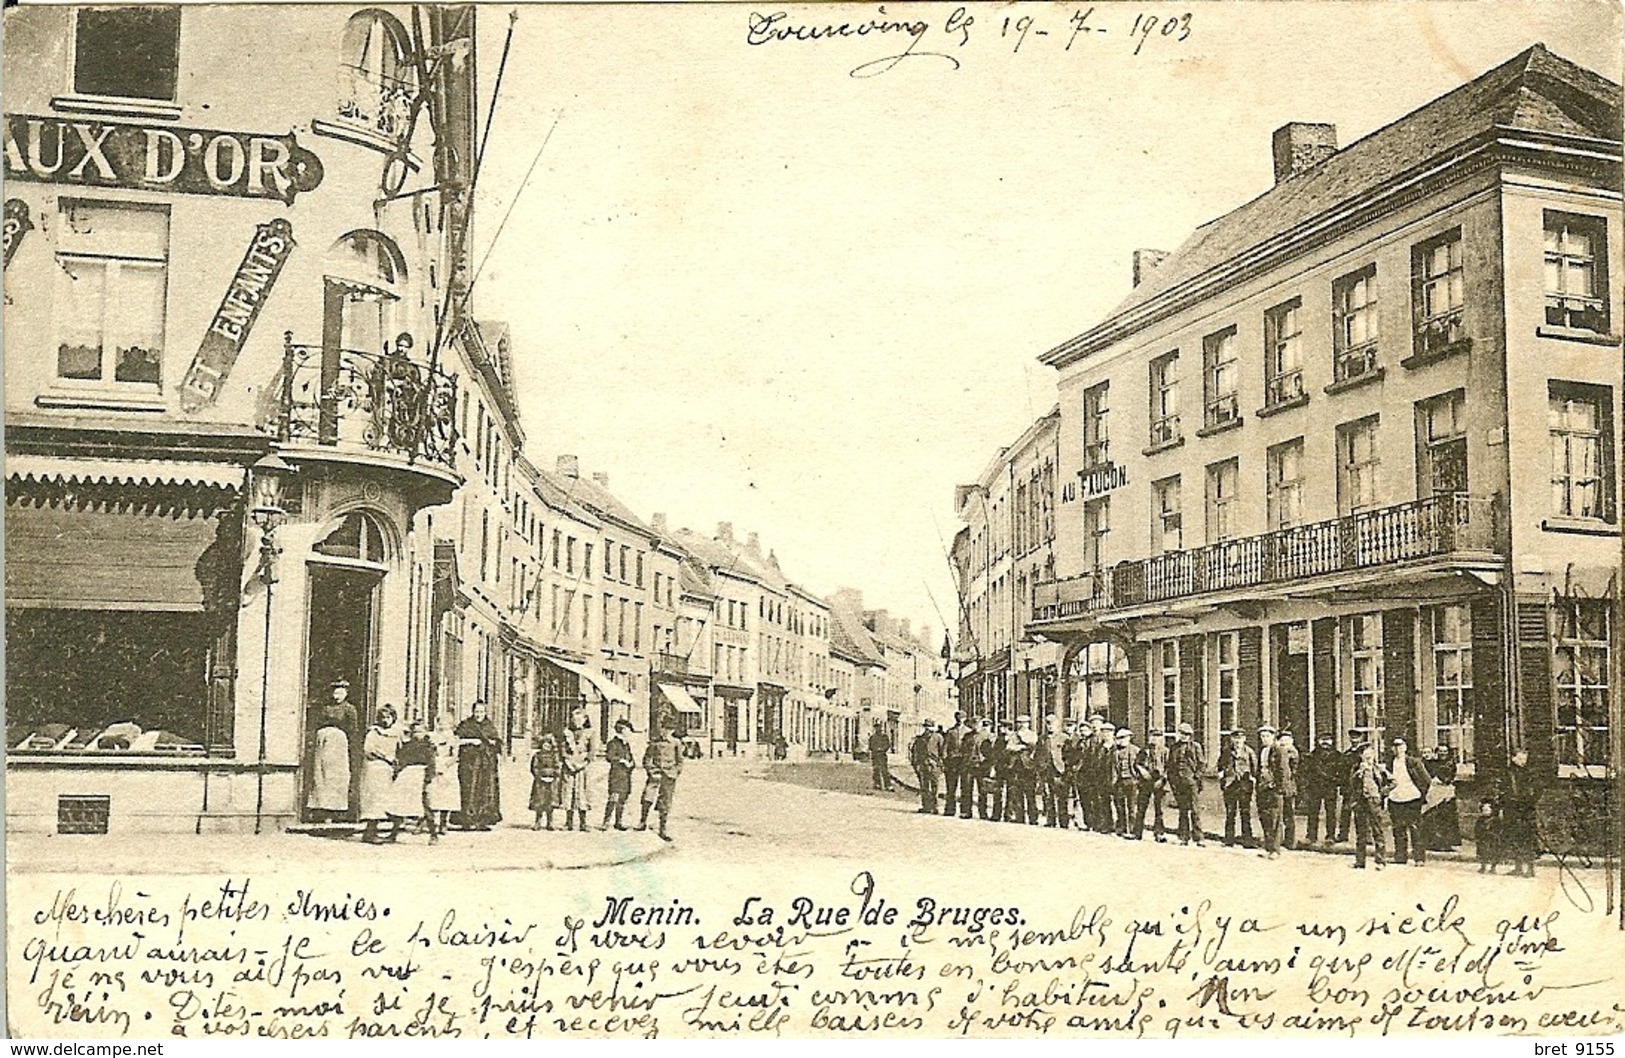 Tourcoing le 19-7-1903
AUX D'OR.
ET ENFANTS
AU FAUCON.
Menin. La Rue de Bruges.
Mes chères petites Amies.
Quand aurais-je le plaisir de vous revoir, il me semble qu'il y a un siècle que
je ne vous ai pas vu - J'espère que vous êtes toutes en bonne santé, ainsi que Mr et Mme
Dites-moi si je puis venir jeudi comme d'habitude. Mon bon souvenir
à vos chers parents, et recevez mille baisers de votre amie qui vs aime de tout son coeur.
bret 9155